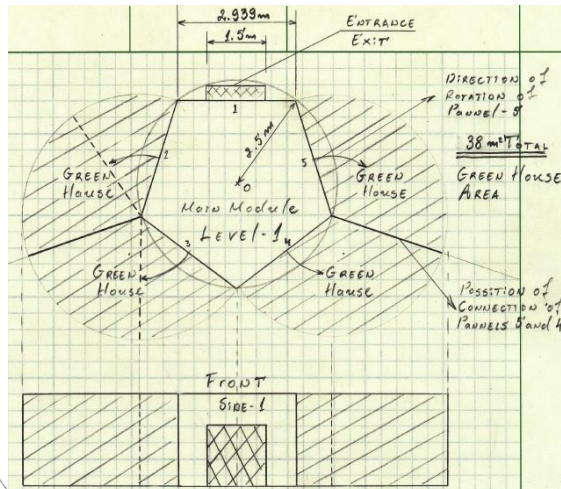 2.939m
1.5m
ENTRANCE
EXIT
DIRECTION of
ROTATION of
PANNEL-5
38 m² TOTAL
GREEN HOUSE
AREA
1
2
5
2.5m
GREEN
House
GREEN
House
O
Main Module
LEVEL-1
3
4
GREEN
House
GREEN
House
POSSITION of
CONNECTION of
PANNELS 5 and 4
FRONT
SIDE-1